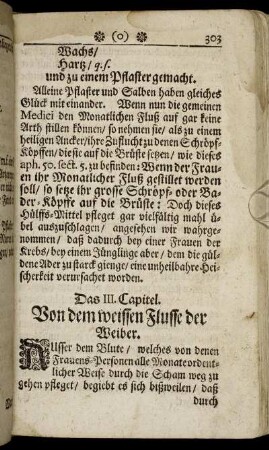 (o) 303
Wachs/
Hartz/ q.s.
und zu einem Pflaster gemacht.
Alleine Pflaster und Salben haben gleiches
Glück mit einander. Wenn nun die gemeinen
Medici den Monatlichen Fluß auf gar keine
Arth stillen können/ so nehmen sie/ als zu einem
heiligen Ancker/ ihre Zuflucht zu denen Schröpf-
Köpffen/ die sie auf die Brüste setzen/ wie dieses
aph. 50. sect. 5. zu befinden: Wenn der Frau-
en ihr Monatlicher Fluß gestillet werden
soll/ so setze ihr grosse Schröpf- oder Ba-
der-Köpffe auf die Brüste: Doch dieses
Hülffs-Mittel pfleget gar vielfältig mahl ü-
bel auszuschlagen/ angesehen wir wahrge-
nommen/ daß dadurch bey einer Frauen der
Krebs/ bey einem Jünglinge aber/ dem die gül-
dene Ader zu starck gienge/ eine unheilbahre Hei-
scherkeit verursachet worden.
Das III. Capitel.
Von dem weissen Flusse der
Weiber.
AUsser dem Blute/ welches von denen
Frauens-Personen alle Monate ordent-
licher Weise durch die Scham weg zu
gehen pfleget/ begiebt es sich bißweilen/ daß
durch